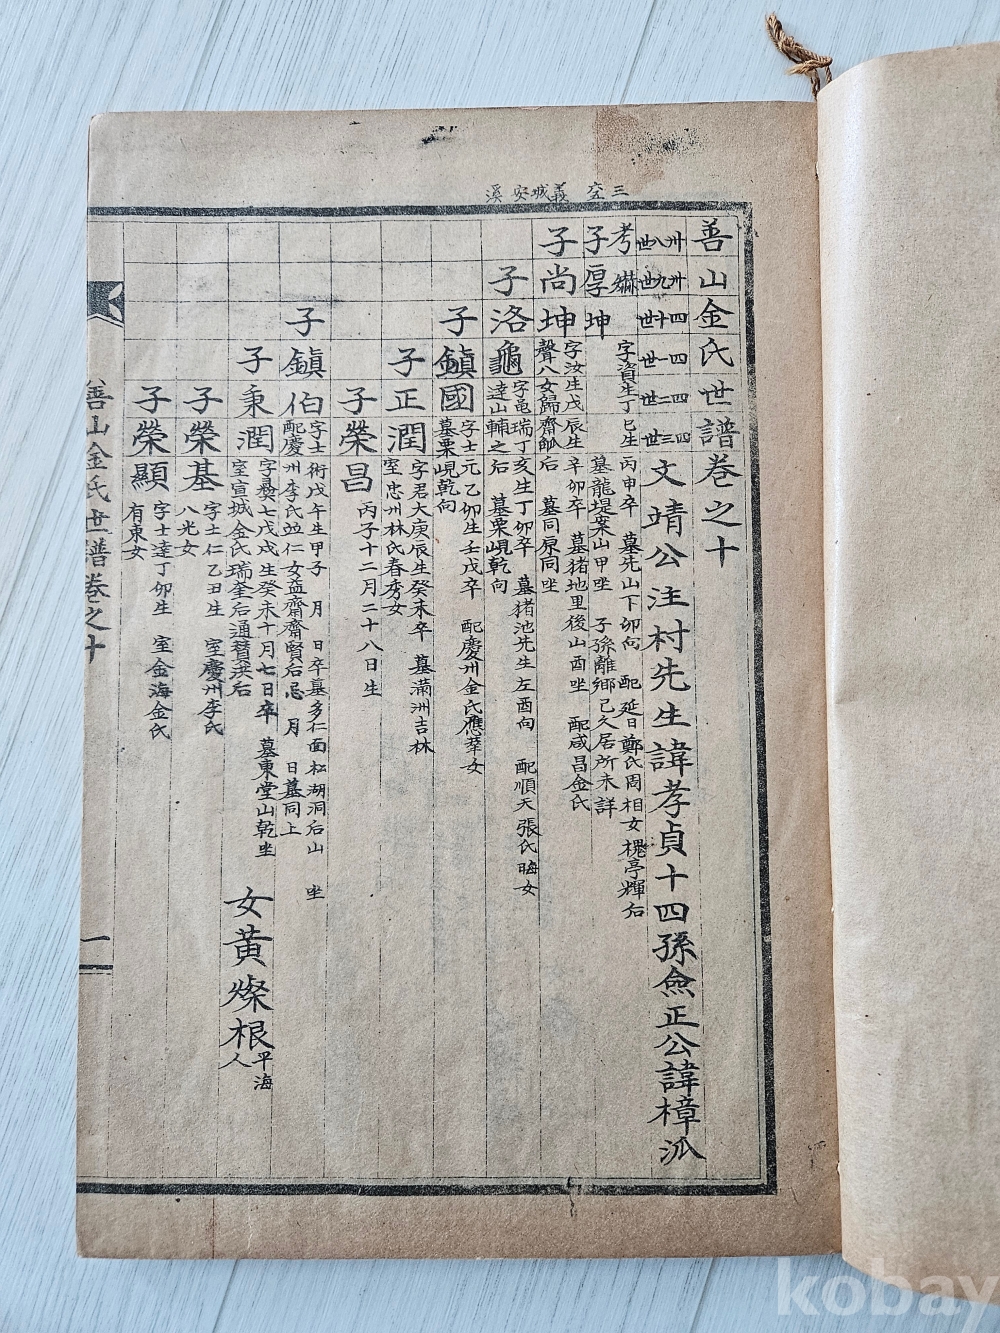 三 空 義城安溪
善山金氏世譜卷之十
卅八世 卅九世 四十世 四一世 四二世 四三世
文靖公注村先生諱孝貞十四孫僉正公諱樟派
考 字資生丁巳生 丙申卒 墓先山下卯向 配延日鄭氏周相女 槐亭輝后
子厚坤 墓龍堤案山甲坐 子孫離鄉已久居所未詳
子尚坤 字汝生戊辰生 辛卯卒 墓猪地里後山酉坐 配咸昌金氏
聲八女歸齋后 墓同原同坐
子洛龜 字亀瑞丁亥生丁卯卒 墓猪池先生左酉向 配順天張氏晦女
達山輔之后 墓栗峴乾向
子鎭國 字士元乙卯生壬戌卒 配慶州金氏應華女
墓栗峴乾向
子正潤 字君大庚辰生癸未卒 墓滿洲吉林
室忠州林氏春秀女
子榮昌 丙子十二月二十八日生
子鎭伯 字士術戊午生甲子 月 日卒墓多仁面松湖洞后山 坐
配慶州李氏並仁女益齋齋賢后忌 月 日墓同上
子秉潤 字彛七戊戌生癸未十月七日卒 墓東堂山乾坐
室宣城金氏瑞奎后通贊洪后
女黃燦根 平海人
子榮基 字士仁乙丑生 室慶州李氏
八光女
子榮顯 字士達丁卯生 室金海金氏
有東女
善山金氏世譜卷之十
一
kobay